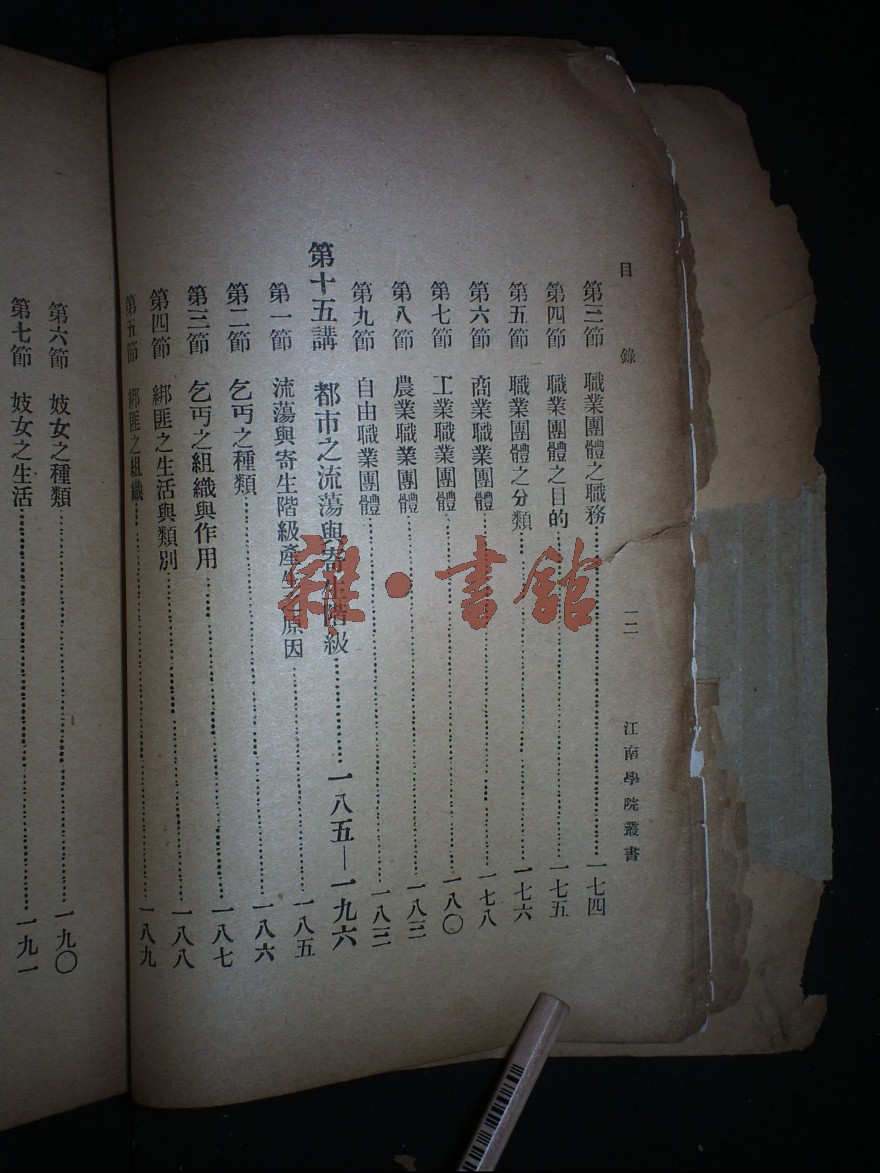 目錄 一二 江南學院叢書
第三節 職業團體之職務……一七四
第四節 職業團體之目的……一七五
第五節 職業團體之分類……一七六
第六節 商業職業團體……一七八
第七節 工業職業團體……一八〇
第八節 農業職業團體……一八二
第九節 自由職業團體……一八三
第十五講 都市之流蕩與寄生階級……一八五—一九六
第一節 流蕩與寄生階級產生之原因……一八五
第二節 乞丐之種類……一八六
第三節 乞丐之組織與作用……一八七
第四節 綁匪之生活與類別……一八八
第五節 綁匪之組織……一八九
第六節 妓女之種類……一九〇
第七節 妓女之生活……一九一
雜·書館